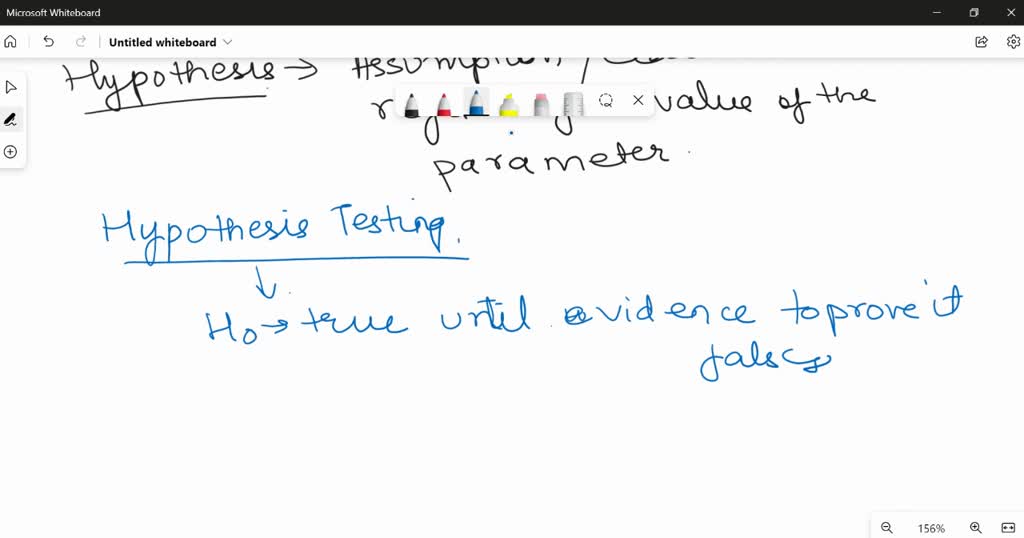 Microsoft Whiteboard
Untitled whiteboard
Hypothesis → Assumption /
value of the
parameter.
Hypothesis Testing.
H0 → true until evidence to prove it
false
156%